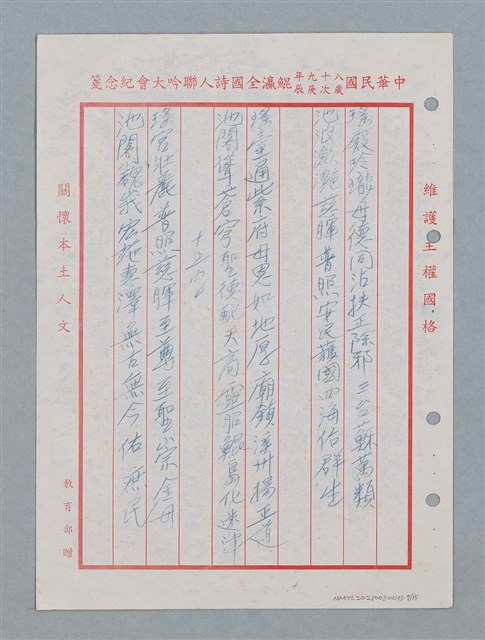 中華民國八十九年歲次庚辰鯤瀛全國詩人聯吟大會紀念箋
維護主權國格
瑤殿玲瓏母德同沾扶正除邪三台蘇萬類
池波瀲灧慈暉普照安民護國四海佑群生
瑤臺通紫府母恩如地厚廟鎮溪州揚正道
池閣聳蒼穹聖德配天高靈昭鯤島化迷津
十五字
瑤宮壯麗普照慈暉至尊至聖崇金母
池閣巍峩宏施惠澤無古無今佑庶民
關懷本土人文
教育部贈
NMTL20210030011-9/15